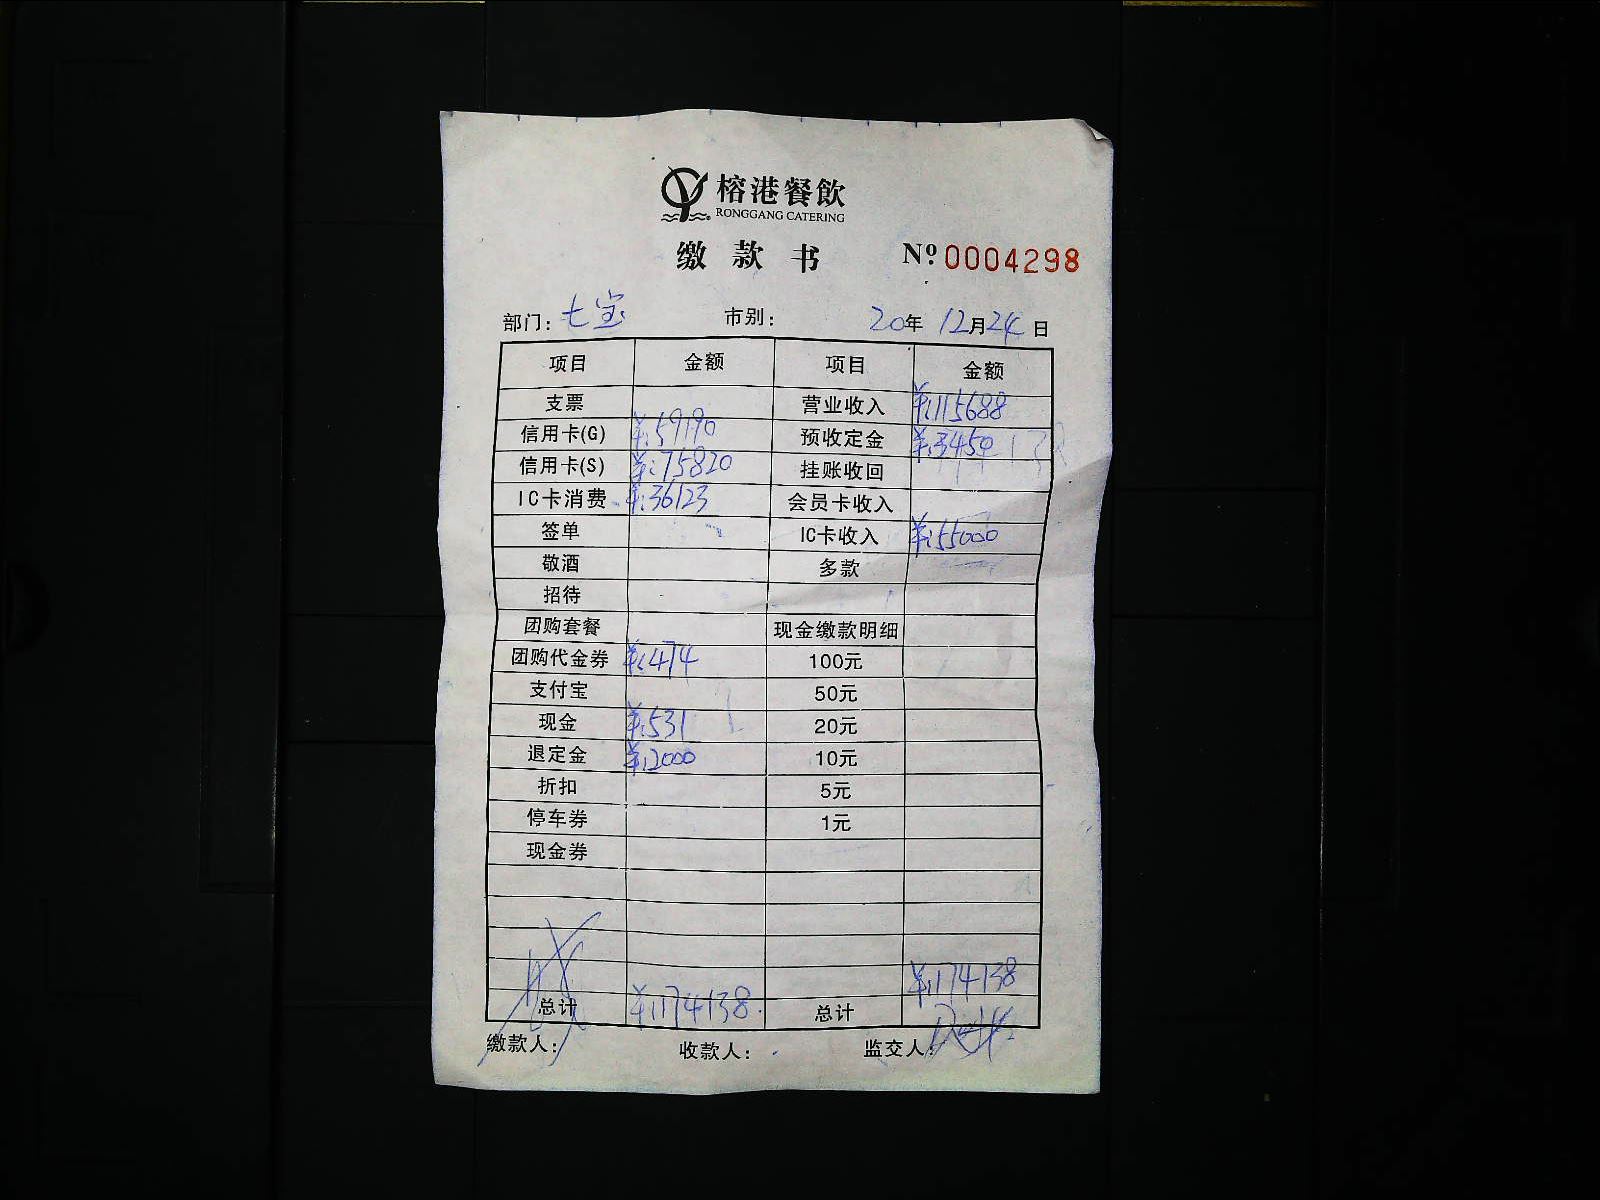 榕港餐飲
RONGGANG CATERING
缴款书 Nº 0004298
部门: 七宝 市别: 20年 12月24日
项目 金额 项目 金额
支票 营业收入 ¥:115688
信用卡(G) ¥:59190 预收定金 ¥:3450
信用卡(S) ¥:75820 挂账收回
IC卡消费 ¥:36123 会员卡收入
签单 IC卡收入 ¥:55000
敬酒 多款
招待
团购套餐 现金缴款明细
团购代金券 ¥:474 100元
支付宝 50元
现金 ¥:531 20元
退定金 ¥:2000 10元
折扣 5元
停车券 1元
现金券
总计 ¥:174138. 总计 ¥:174138
缴款人: 收款人: 监交人: